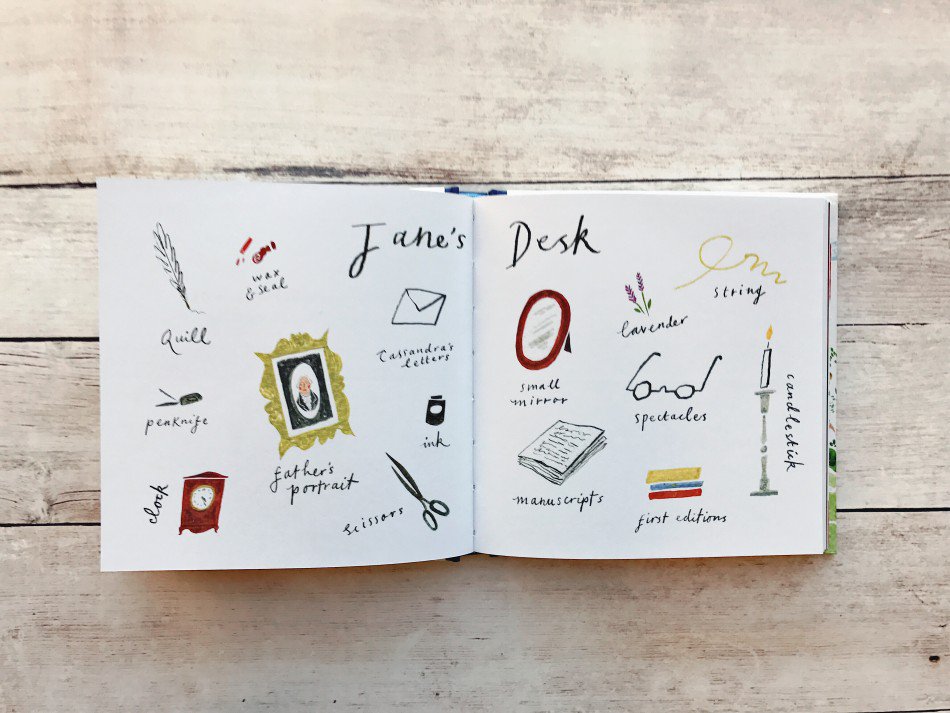 Jane's Desk
Quill
wax
& seal
Cassandra's
letters
penknife
father's
portrait
ink
clock
scissors
string
lavender
small
mirror
spectacles
candlestick
manuscripts
first editions